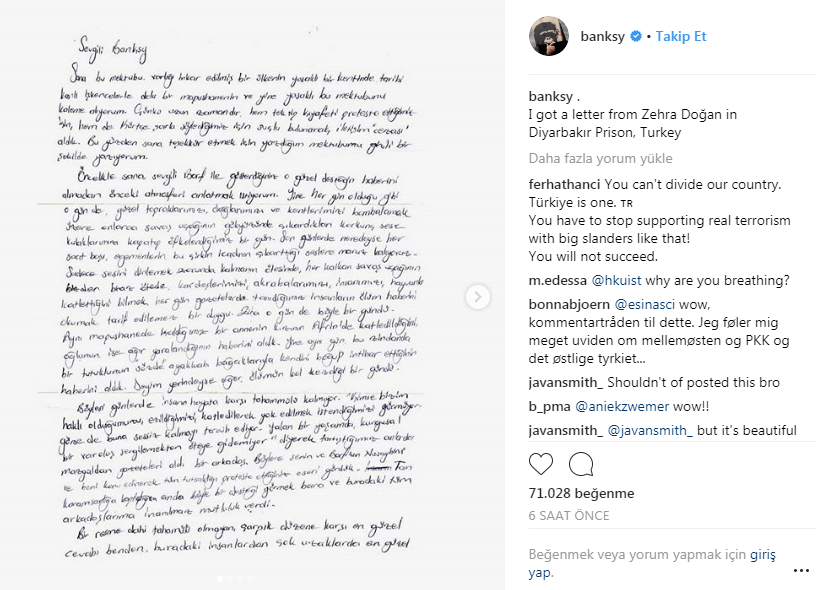 Sevgili Banksy
Sana bu mektubu varlığı inkar edilmiş bir ülkenin yasaklı bir kentinde tarihi
kanlı işkencelerle dolu bir mapushanenin ve yine yasaklı bu mektubumu
kaleme alıyorum. Çünkü uzun zamandır, hem tek tip kıyafeti protesto ettiğimiz
için, hem de Kürtçe şarkı söylediğimiz için suçlu bulunarak, iletişim "cezası"
aldık. Bu yüzden sana teşekkür etmek için yazdığım mektubumu gizli bir
şekilde yazıyorum.
Öncelikle sana, sevgili Borf ile gösterdiğiniz o güzel desteğin haberini
almadan önceki atmosferi anlatmak istiyorum. Yine her gün olduğu gibi
o gün de, güzel topraklarımızı, dağlarımızı ve kentlerimizi bombalamak
üzere onlarca savaş uçağının gökyüzünde çıkardıkları korkunç sese
kulaklarımızı kapatıp öfkelendiğimiz bir gün. Son günlerde neredeyse her
saat başı, egemenlerin bu çirkin icadının çıkarttığı seslere maruz kalıyoruz.
Sadece sesini dinlemek zorunda kalmanın ötesinde, her kalkan savaş uçağının
kardeşlerimizi, akrabalarımızı, insanımızı, hayvanları
katlettiğini bilmek, her gün gazetelerde tanıdığımız insanların ölüm haberini
okumak tarif edilemez bir duygu. İşte o gün de böyle bir gündü.
Aynı mapushanede kaldığımız bir annenin kızının Afrin'de katledildiğini,
oğlunun ise ağır yaralandığının haberini aldık. Yine aynı gün bu zindanda
bir tutuklunun ayakkabı bağcıklarıyla kendini boğup intihar ettiğinin
haberini aldık. Deyim yerindeyse eğer, ölümün kol gezdiği bir gündü.
Böylesi günlerde insanın hayata karşı tahammülü kalmıyor. "Kimse bizim
haklı olduğumuzu, ezildiğimizi, katledilerek yok edilmek istendiğimizi görmüyor.
Görse de buna sessiz kalmayı tercih ediyor. Yalan bir yaşamda, kurgusal
bir varoluş sergilemekten öteye gidemiyor" diyerek tartıştığımız anlarda
mazgaldan gazeteleri aldı bir arkadaş. Böylece senin ve Borf'un Nusaybin'i
ve beni konu edinerek tüm tutsaklığı protesto ettiğiniz eseri gördük. Tam
karamsarlığa kapıldığım anda böyle bir desteği görmek bana ve buradaki tüm
arkadaşlarıma inanılmaz mutluluk verdi.
Bir resme dahi tahammülü olmayan, çarpık düzene karşı en güzel
cevabı benden, buradaki insanlardan çok uzaklarda en güzel
banksy • Takip Et
banksy .
I got a letter from Zehra Doğan in
Diyarbakır Prison, Turkey
Daha fazla yorum yükle
ferhathanci You can't divide our country.
Türkiye is one. TR
You have to stop supporting real terrorism
with big slanders like that!
You will not succeed.
m.edessa @hkuist why are you breathing?
bonnabjoern @esinasci wow,
kommentartråden til dette. Jeg føler mig
meget uviden om mellemøsten og PKK og
det østlige tyrkiet...
javansmith_ Shouldn't of posted this bro
b_pma @aniekzwemer wow!!
javansmith_ @javansmith_ but it's beautiful
71.028 beğenme
6 SAAT ÖNCE
Beğenmek veya yorum yapmak için giriş
yap.